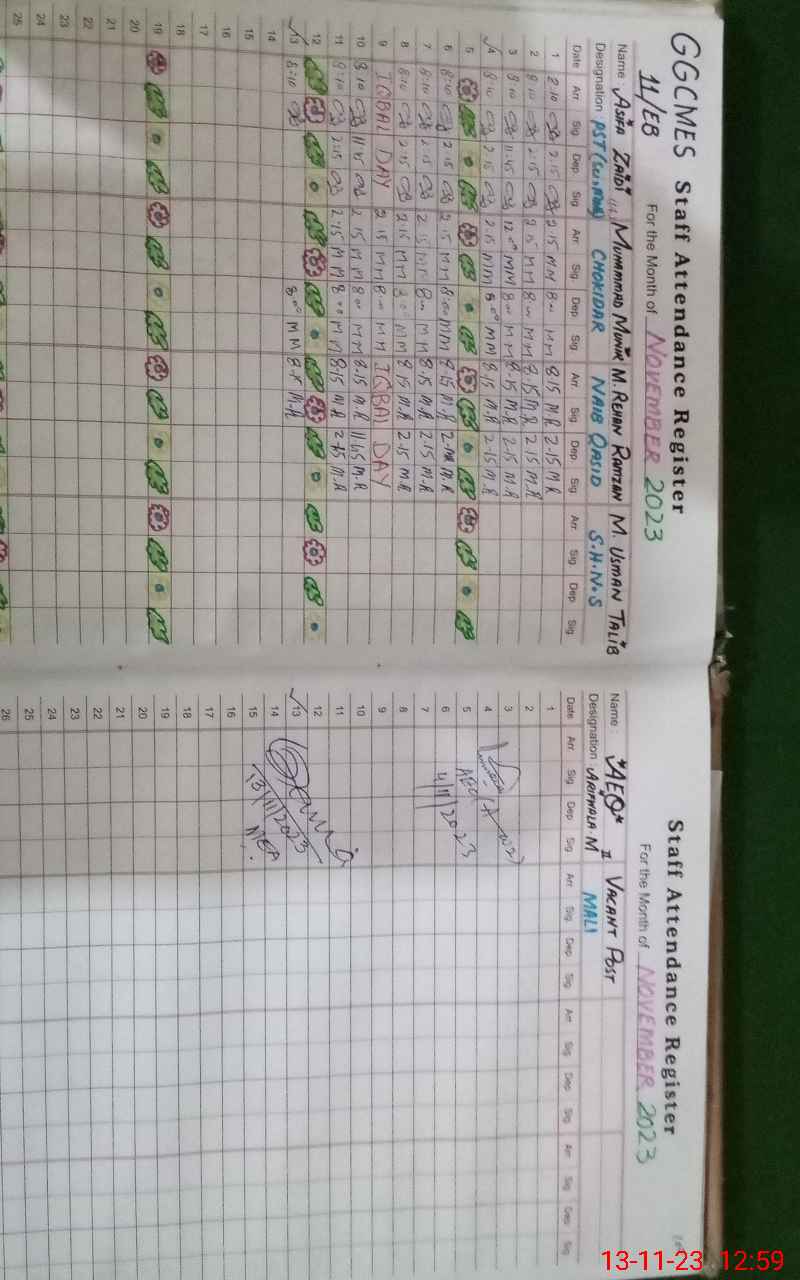 GGCMES Staff Attendance Register
11/EB For the Month of NOVEMBER 2023
Name: ASIFA ZAIDI MUHAMMAD MUNIR M. REHAN RAMZAN M. USMAN TALIB
Designation: PST CHOKIDAR NAIB QASID S.H.N.S
Date Arr Sig Dep Sig Arr Sig Dep Sig Arr Sig Dep Sig Arr Sig Dep Sig
1 8.10 2.15 2.15 MM 8.00 MM 8.15 M.R 2.15 M.R
2 8.10 2.15 2.15 MM 8.00 MM 8.15 M.R 2.15 M.R
3 8.10 11.45 12.00 MM 8.00 MM 8.15 M.R 2.15 M.R
4 8.10 2.15 2.15 MM 8.00 MM 8.15 M.R 2.15 M.R
5
6 8.10 2.15 2.15 MM 8.00 MM 8.15 M.R M.R
7 8.10 2.15 2.15 MM 8.00 MM 8.15 M.R 2.15 M.R
8 8.10 2.15 2.15 MM MM 8.15 M.R 2.15 M.R
9 IQBAL DAY 2.15 MM 8.00 MM IQBAL DAY
10 8.10 11.45 2.15 MM 8.00 MM 8.15 M.R 11.45 M.R
11 8.10 2.15 2.15 MM 8.00 MM 8.15 M.R 2.15 M.R
12
13 8.10 8.00 MM 8.15 M.R
14
15
16
17
18
19
20
21
22
23
24
25
Staff Attendance Register
For the Month of NOVEMBER 2023
Name: AEO VACANT POST
Designation: ARIFWALA M II MALI
Date Arr Sig Dep Sig Arr Sig Dep Sig Arr Sig Dep Sig Arr Sig Dep Sig
1
2
3
4
5 AEO
6 4/11/2023
7
8
9
10
11
12
13
14 13/11/2023
15 AEO
16
17
18
19
20
21
22
23
24
25
26
13-11-23 12:59